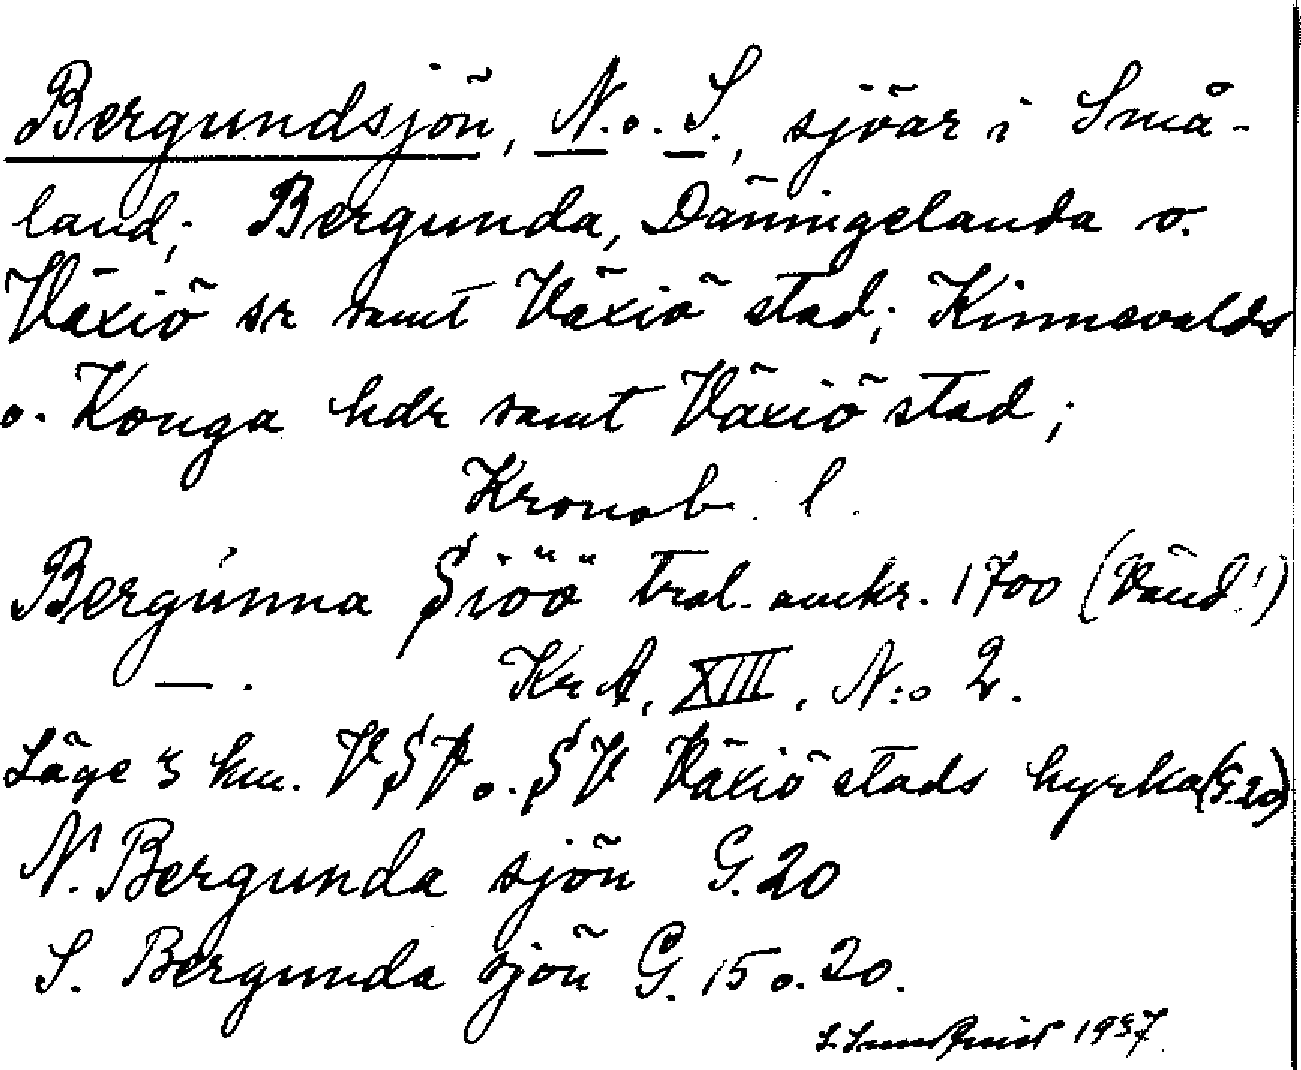 Bergundsjön, N. o. S., sjöar i Små-
land; Bergunda, Dänningelanda o.
Växiö sr samt Växiö stad; Kinnevalds
o. Konga hdr samt Växiö stad;
Kronob. l.
Bergúnna Siöö tral. omkr. 1700 (Vänd!)
—. KrA, XIII, N:o 2.
Läge 3 km. VSV o. SV Växiö stads kyrka (G.20)
N. Bergunda sjön G. 20
S. Bergunda sjön G. 15 o. 20.
1937